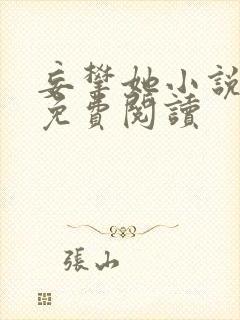 妄攀她小說
免費閱讀
張山